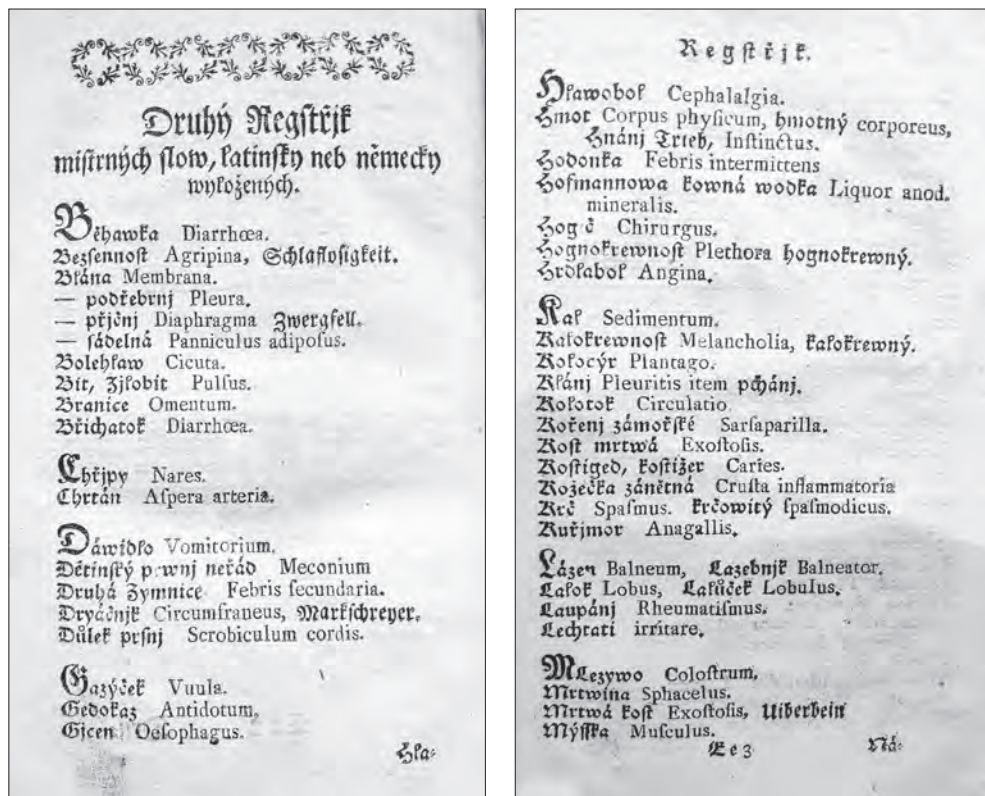 Druhý Regſtřjk
miſtrných ſlow, latinſky neb německy
wyložených.
Běhawka Diarrhœa.
Bezſennoſt Agripina, Schlafloſigkeit.
Blána Membrana.
— podřebrnj Pleura.
— přjčnj Diaphragma Zwergfell.
— ſádelná Panniculus adipoſus.
Bolehlaw Cicuta.
Bit, Žjlobit Pulſus.
Branice Omentum.
Břichatok Diarrhœa.
Chřjpy Nares.
Chrtán Aſpera arteria.
Dáwidlo Vomitorium.
Dětinſký prwnj neřád Meconium
Druhá Zymnice Febris ſecundaria.
Dryáčnjk Circumfraneus, Markſchreyer.
Důlek prſnj Scrobiculum cordis.
Gazýček Vuula.
Gedokaz Antidotum.
Gjcen Oeſophagus.
Hla⸗
Regſtřjk.
Hlawobol Cephalalgia.
Hmot Corpus phyſicum, hmotný corporeus,
Hnánj Trieb, Inſtinctus.
Hodonka Febris intermittens
Hofmannowa kowná wodka Liquor anod.
mineralis.
Hogič Chirurgus.
Hognokrewnoſt Plethora hognokrewný.
Hrdlabol Angina.
Kal Sedimentum.
Kalokrewnoſt Melancholia, kalokrewný.
Kolocýr Plantago.
Klánj Pleuritis item pchánj.
Kolotok Circulatio
Kořenj zámořſké Sarſaparilla.
Koſt mrtwá Exoſtoſis.
Koſtiged, koſtižer Caries.
Kožečka zánětná Cruſta inflammatoria
Krč Spaſmus. krčowitý ſpaſmodicus.
Kuřjmor Anagallis.
Lázen Balneum, Lazebnjk Balneator.
Lalok Lobus, Lalůček Lobulus.
Laupánj Rheumatiſmus.
Lechtati irritare.
Mlezywo Coloſtrum,
Mrtwina Sphacelus.
Mrtwá koſt Exoſtoſis, Uiberbein
Mýſſka Muſculus.
Ee 3 Ná⸗